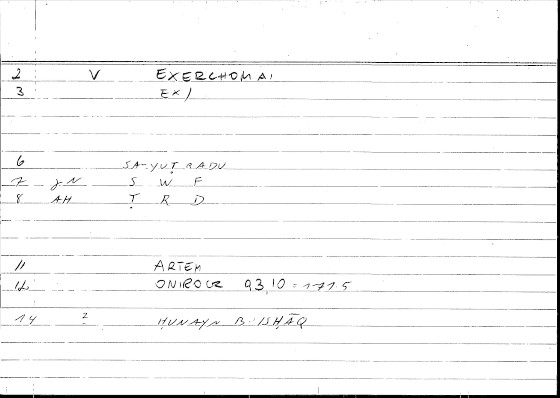 2 V EXERCHOMAI
3 EX/
6 SA-YUṬRADU
7 JN S W F
8 AH Ṭ R D
11 ARTEM
12 ONIROCR 93,10 = 171.5
14 ? ḤUNAYN B. ISḤĀQ